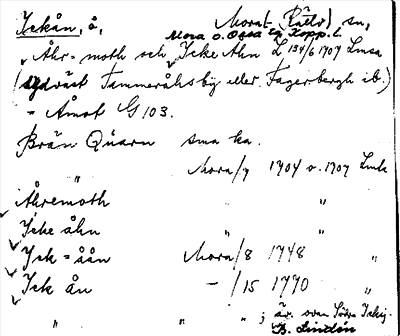 Ickån, å, Mora (Rättv) sn,
Mora o. Orsa tg Kopp. l.
"Åhr-moth och Icke Åhn L 134/6 1707 Lmsa
(sydväst Fammeråhsby eller Fagerbergh ib.)
- Åmot G 103.
Brän Quarn sma ka.
Mora/7 1704 o. 1707 Lmk
Åkremoth " "
Icke åhn " "
Ick = åån Mora/8 1748 "
Ick ån -/15 1770 "
" " "; är ovan Södra
B. Lindén